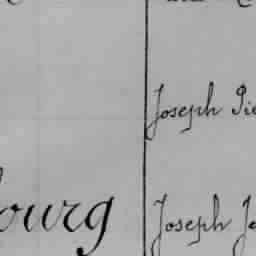 Joseph Pie
ourg Joseph Je